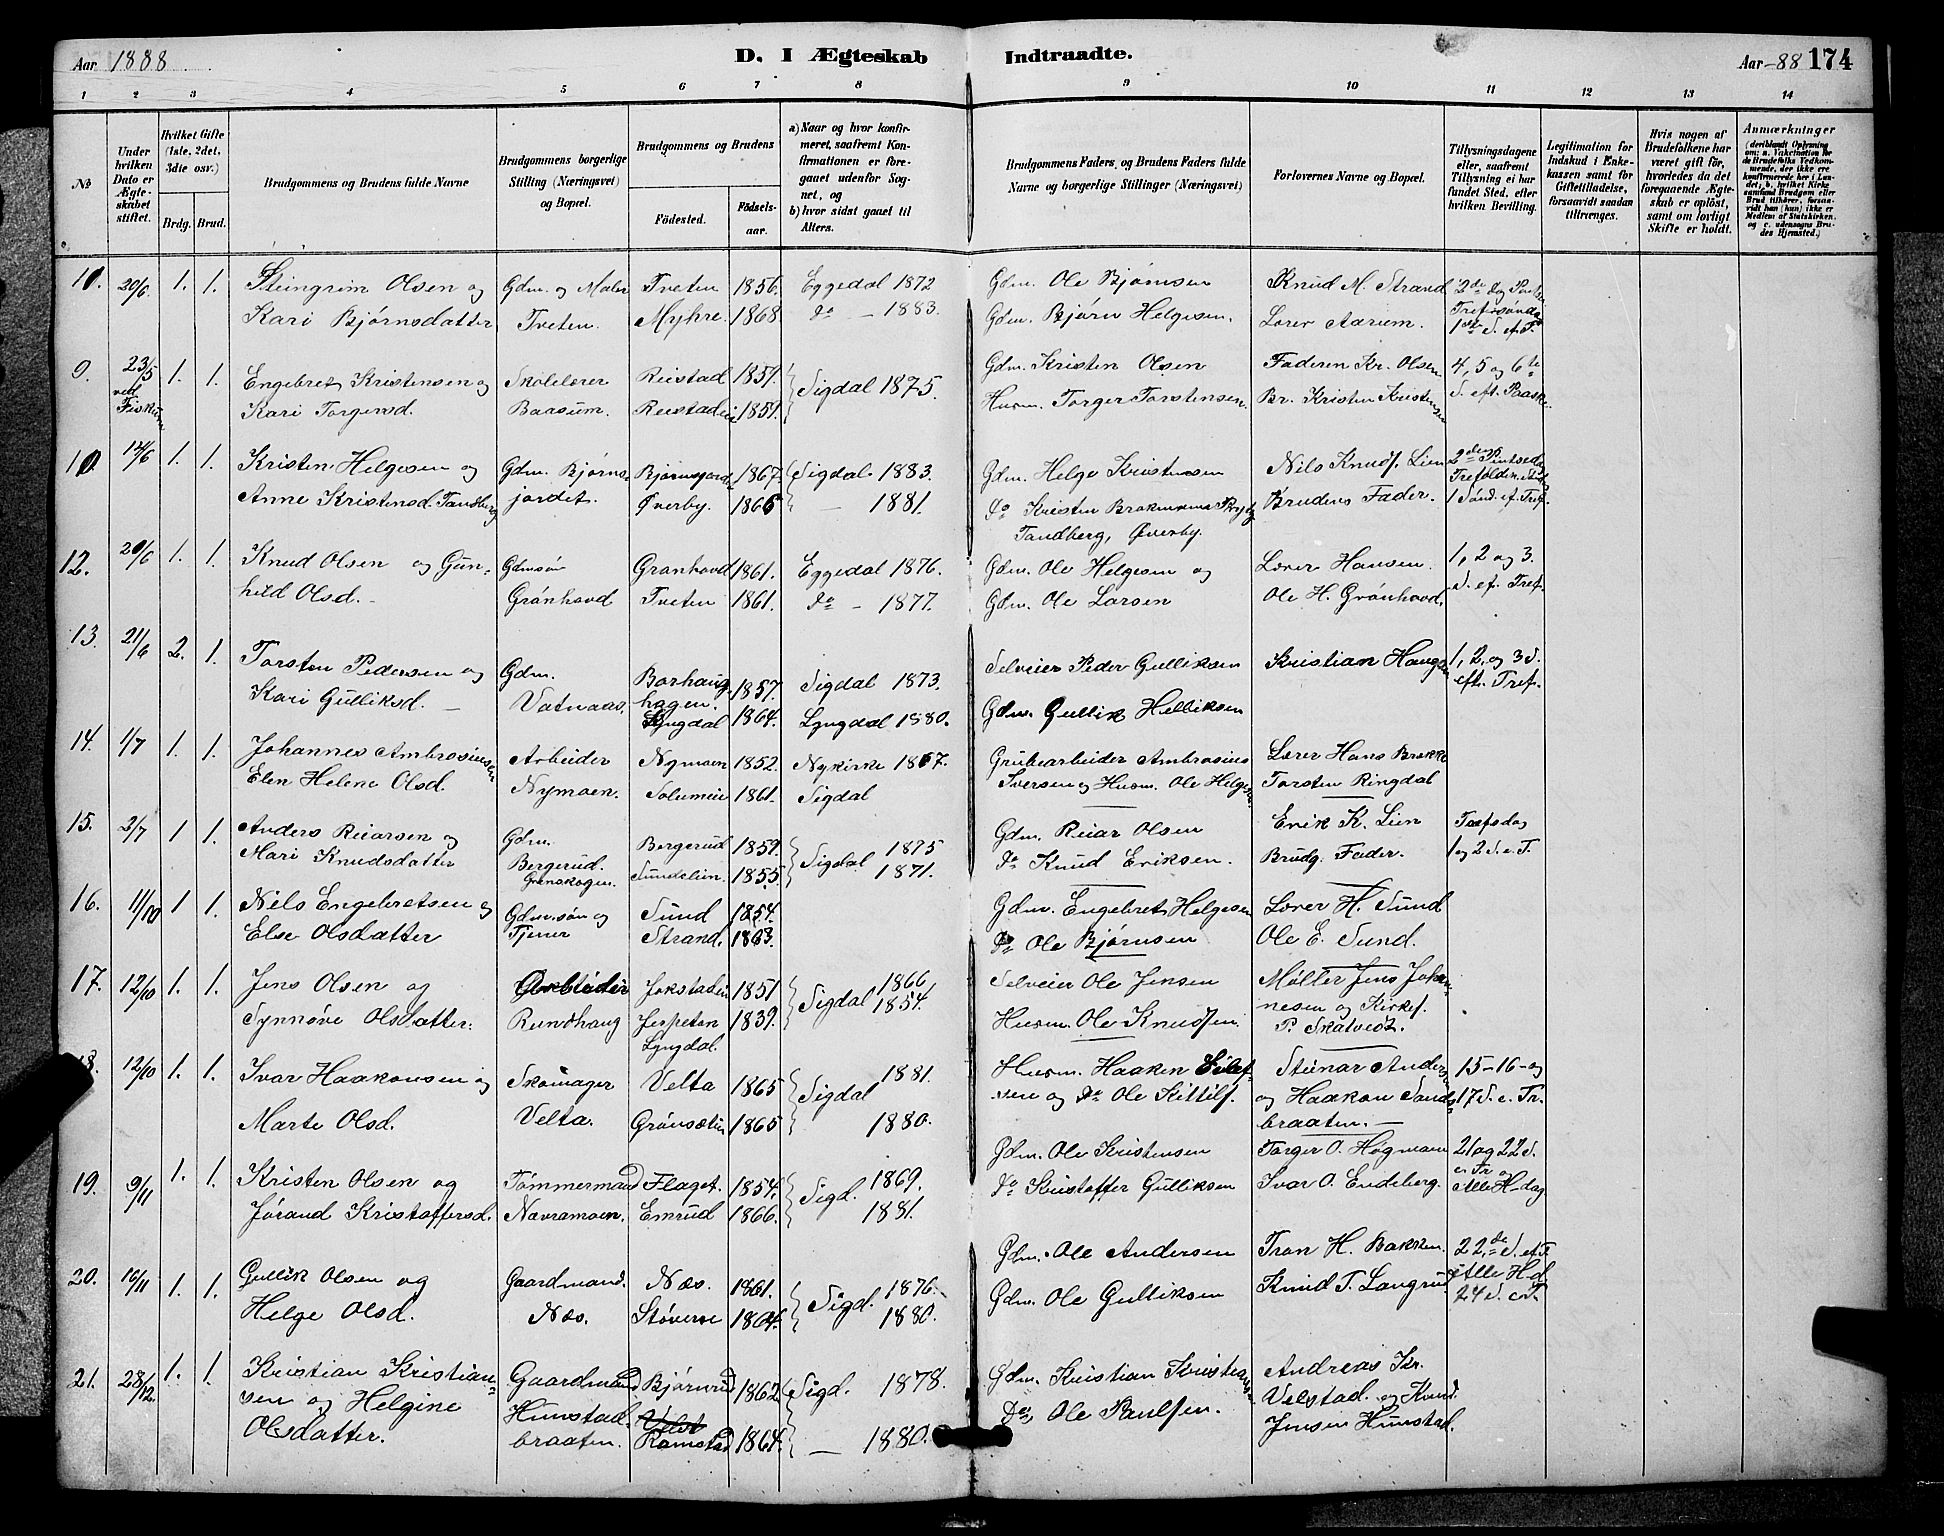 Aar 1888
D. I Ægteskab Indtraadte.
Aar -88 174
1 2 3 4 5 6 7 8 9 10 11 12 13 14
№
Under hvilken Dato er Ægteskabet stiftet.
Hvilket Gifte (1ste, 2det, 3die osv.)
Brdg. Brud.
Brudgommens og Brudens fulde Navne
Brudgommens borgerlige Stilling (Næringsvei) og Bopæl.
Brudgommens og Brudens
Fødested. Fødselsaar.
a) Naar og hvor konfirmeret, saafremt Konfirmationen er foregaaet udenfor Sognet, og
b) hvor sidst gaaet til Alters.
Brudgommens Faders, og Brudens Faders fulde Navne og borgerlige Stillinger (Næringsvei)
Forlovernes Navne og Bopæl.
Tillysningsdagene eller, saafremt Tillysning ei har fundet Sted, efter hvilken Bevilling.
Legitimation for Indskud i Enkekassen samt for Giftetilladelse, forsaavidt saadan tiltrænges.
Hvis nogen af Brudefolkene har været gift før, hvorledes da det foregaaende Ægteskab er opløst, samt om lovligt Skifte er holdt.
Anmærkninger
20/6 1. 1. Steingrim Olsen og Gdm. og Maler Tveten 1856. Eggedal 1872 Gdm. Ole Bjørnsen Knud M. Strand
Kari Bjørnsdatter Tveten. Myhre 1868 do — 1883. Gdm. Bjørn Helgesen. Lærer Aarum.
9. 23/5 ved Fiskum 1. 1. Engebret Kristensen og Skolelærer Reistad 1851. Sigdal 1875. Gdm. Kristen Olsen Faderen Kr. Olsen 4, 5 og 6te
Kari Torgersd. 1859. Husm. Torger Torstensen. Br. Kristen Kristensen S. eft. Paaske
10. 1. 1. Kristen Helgesen og Gdm. Bjørns- 1867. Sigdal 1883. Gdm. Helge Kristensen Nils Knuds. Lien
Anne Kristensd. Tandberg jordet. Øverby. 1865 — 1881. do Kristen Tandberg, Øverby. Brudens Fader. 1 Sønd. ef. Tref.
12. 20/6 1. 1. Knud Olsen og Gun- Gdmsøn Grønhovd 1861. Eggedal 1876. Gdm. Ole Helgesen og Lærer Hansen. 1, 2 og 3.
hild Olsd. Grønhovd Tveten 1861. do — 1877. Gdm. Ole Larsen Ole H. Grønhovd. S. ef. Tref.
13. 21/6 2. 1. Torsten Pedersen og Gdm. Borhaug- hagen. 1857. Sigdal 1873. Selveier Peder Gulliksen Kristian Haugen 1, 2, og 3 S.
Kari Gulliksd. Vatnaas. Lyngdal 1864. Lyngdal 1880. Gdm. Gullik Helliksen eft. Tref.
14. 1/7 1. 1. Johannes Ambrosiussen Arbeider Nymoen 1852. Nykirke 1867. Grubearbeider Ambrosius Lærer Hans Brekke
Elen Helene Olsd. Nymoen. 1861. Sigdal Iversen og Husm. Ole Helges. Torsten Ringdal
15. 2/7 1 1. Anders Reiarsen og Gdm. Bergerud 1859. Sigdal 1875 Gdm. Reiar Olsen Erik K. Lien
Mari Knudsdatter Bergerud. Grønskogen. Sundelien. 1855. 1871. do Knud Eriksen. Brudg. Fader. 1 og 2 S. e. T.
16. 11/10 1 1. Nils Engebretsen og Gdm. søn og Sund 1854. Gdm. Engebret Helgesen Lærer H. Sund
Else Olsdatter Tjener Strand. 1863. do Ole Bjørnsen Ole E. Sund.
17. 12/10 1. 1. Jens Olsen og 1851 Sigdal 1866 Selveier Ole Jensen Møller Jens Johan-
Synnøve Olsdatter. Rundhaug Lyngdal. 1839. 1854. Husm. Ole Knudsen. nesen og Kirkes. P. Skatvedt.
18. 12/10 1. 1. Ivar Haakonsen og Skomager Velta 1865 Sigdal 1881. Husm. Haaken Eilef- Steinar Anders. 15-16- og
Marte Olsd. Velta. 1865 1880. sen og do Ole Kittils. og Haakon Sands- braaten. 17 S. e. Tr.
19. 9/11 1. 1. Kristen Olsen og Tømmermand Flaget. 1854. Sigd. 1869. Gdm. Ole Kristensen Torger O. Høgmoen 21 og 22 S.
Jørand Kristoffersd. Navramoen. Emrud 1866. 1881. do Kristoffer Gulliksen Ivar O. Endeberg. e. Tr og Alle H-dag
20. 16/11 1. 1. Gullik Olsen og Gaardmand. Næs. 1861. Sigd. 1876. Gdm. Ole Andersen Tron H. Bakken. 22de S. ef. T.
Helge Olsd. Næs. 1864. 1880. Gdm. Ole Gulliksen Knud T. Langrud Alle H.d. 24 S. e. T.
21. 28/12. 1. 1. Kristian Kristian- Gaardmand Bjørnrud 1862 Sigd. 1878. Gdm. Kristian Kristensen Andreas Kr.
sen og Helgine Hunstad- do Ole Paulsen. Velstad og Knud
Olsdatter. braaten. Ramstad 1864. — 1880. Jensen Hunstad.